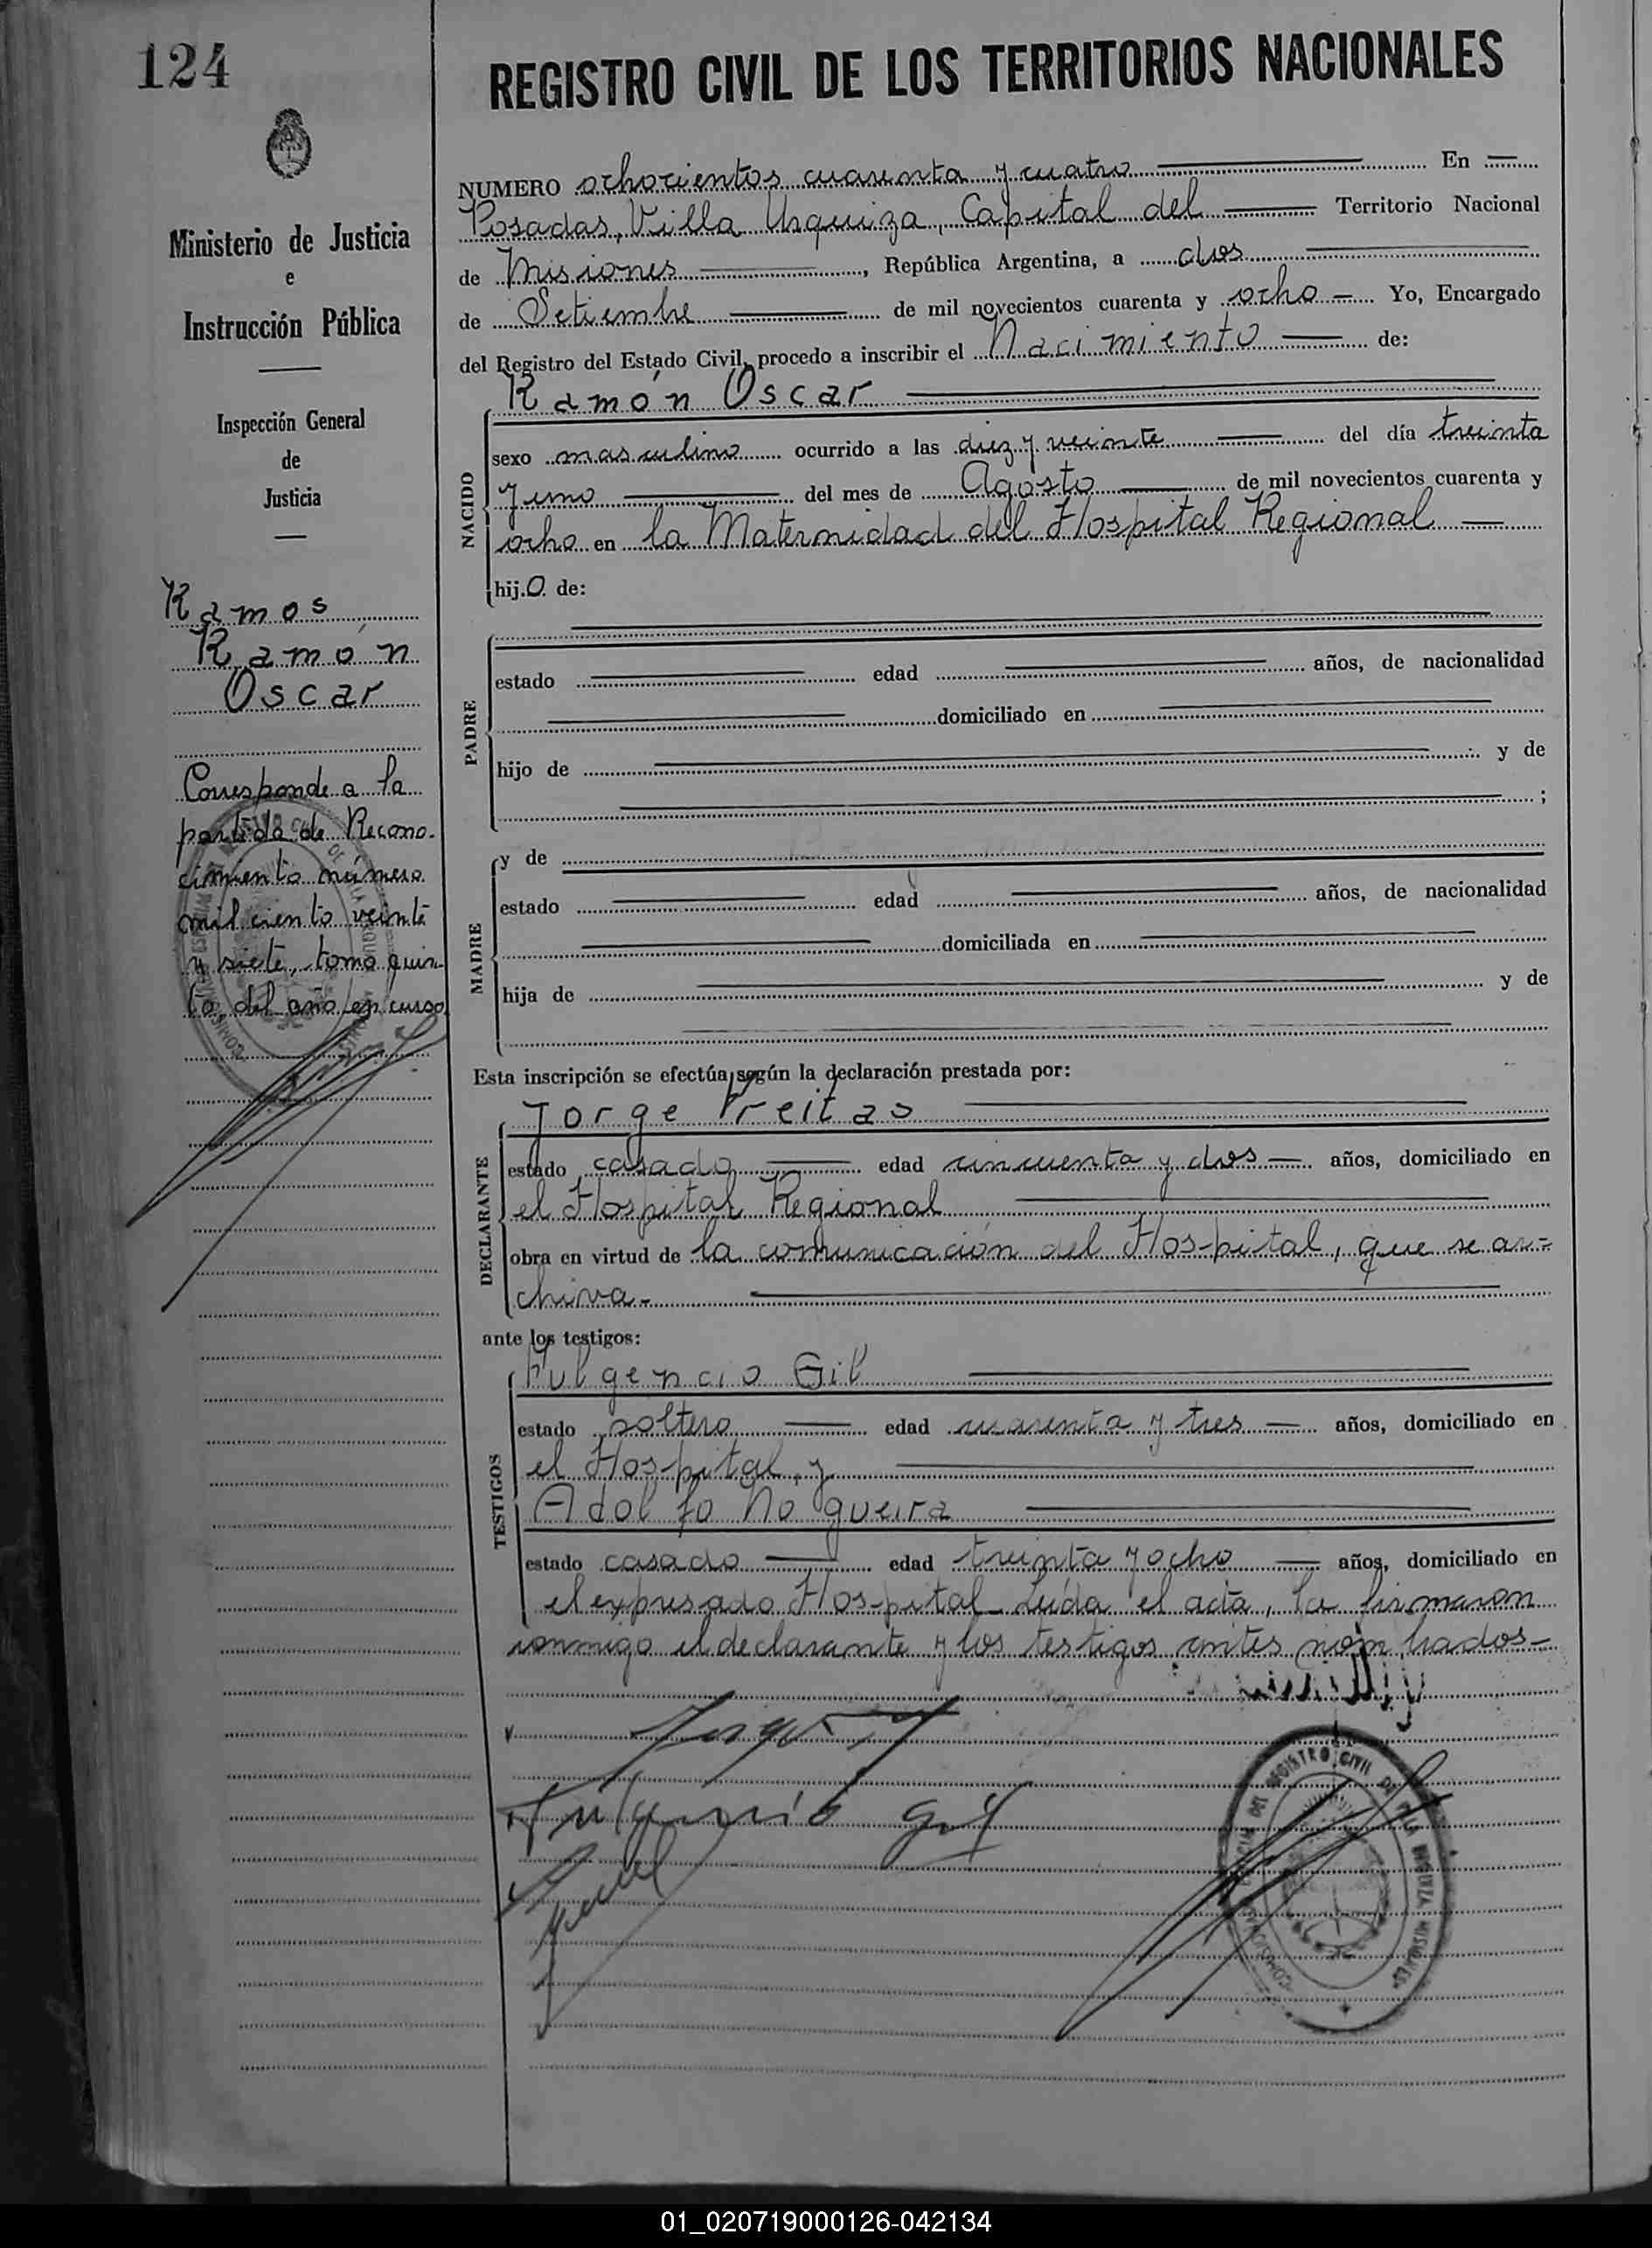 124
REGISTRO CIVIL DE LOS TERRITORIOS NACIONALES
Ministerio de Justicia
e
Instrucción Pública
Inspección General
de
Justicia
Ramos
Ramón
Oscar
Corresponde a la
partida de Recono-
cimiento número
mil ciento veinte
y siete, tomo quin-
to, del año en curso
NUMERO ochocientos cuarenta y cuatro En
Posadas, Villa Urquiza, Capital del Territorio Nacional
de Misiones, República Argentina, a dos
de Setiembre de mil novecientos cuarenta y ocho Yo, Encargado
del Registro del Estado Civil, procedo a inscribir el Nacimiento de:
Ramón Oscar
NACIDO
sexo masculino ocurrido a las diez y veinte del día treinta
y uno del mes de Agosto de mil novecientos cuarenta y
ocho en la Maternidad del Hospital Regional
hijo de:
PADRE
estado edad años, de nacionalidad
domiciliado en
hijo de y de
;
MADRE
y de
estado edad años, de nacionalidad
domiciliada en
hija de y de
Esta inscripción se efectúa según la declaración prestada por:
DECLARANTE
Jorge Freitas
estado casado edad cincuenta y dos años, domiciliado en
el Hospital Regional
obra en virtud de la comunicación del Hospital, que se ar=
chiva.-
ante los testigos:
TESTIGOS
Fulgencio Gil
estado soltero edad cuarenta y tres años, domiciliado en
el Hospital, y
Adolfo Nogueira
estado casado edad treinta y ocho años, domiciliado en
el expresado Hospital. Leída el acta, la firmaron
conmigo el declarante y los testigos antes nombrados-
Fulgencio Gil
REGISTRO CIVIL DE VILLA URQUIZA MISIONES
01_020719000126-042134